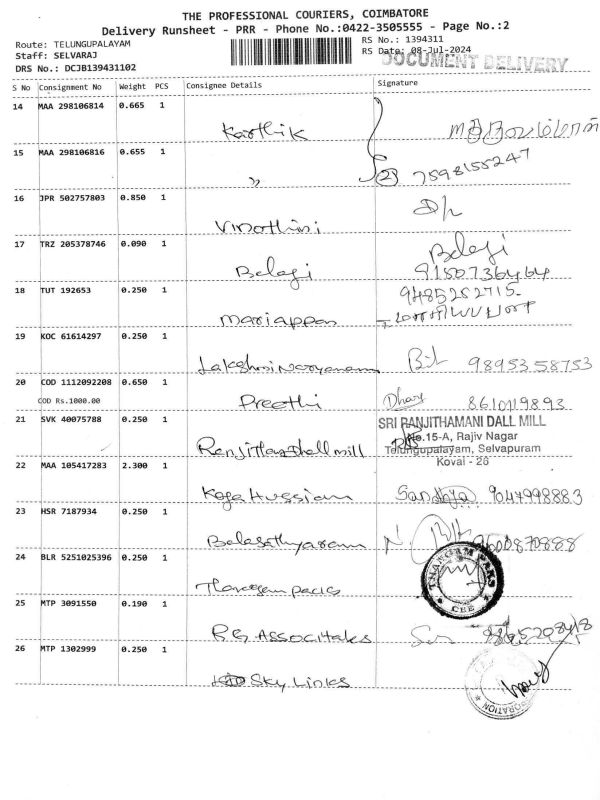 THE PROFESSIONAL COURIERS, COIMBATORE
Delivery Runsheet - PRR - Phone No.:0422-3505555 - Page No.:2
Route: TELUNGUPALAYAM
RS No.: 1394311
Staff: SELVARAJ
RS Date: 08-Jul-2024
DOCUMENT DELIVERY
DRS No.: DCJB139431102
S No Consignment No Weight PCS Consignee Details Signature
14 MAA 298106814 0.665 1 Karthik
15 MAA 298106816 0.655 1 〃 (2) 7598155247
16 JPR 502757803 0.850 1 Vinothini
17 TRZ 205378746 0.090 1 Balaji Balaji
9150736464
18 TUT 192653 0.250 1 Mariappan 9485252715
மாரியப்பன்
19 KOC 61614297 0.250 1 Lakshmi Naryanann 9895358753
20 COD 1112092208 0.650 1 Preethi 8610119893
COD Rs.1000.00
21 SVK 40075788 0.250 1 Ranjitham Dhall mill
SRI RANJITHAMANI DALL MILL
No.15-A, Rajiv Nagar
Telungupalayam, Selvapuram
Kovai - 26
22 MAA 105417283 2.300 1 Koja Hussian Sandhya 9047998883
23 HSR 7187934 0.250 1 Balasathyaram
24 BLR 5251025396 0.250 1 Thangam packs
THANGAM PAKS
CBE
25 MTP 3091550 0.190 1 R.G Associtales
26 MTP 1302999 0.250 1 Sky Links